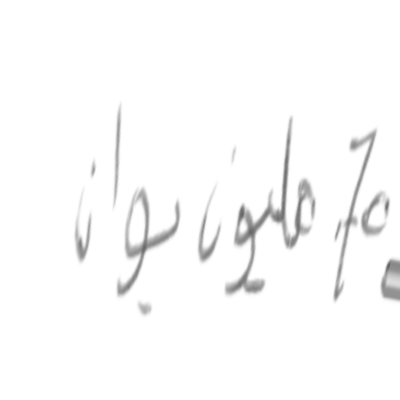 70 مليون يوان